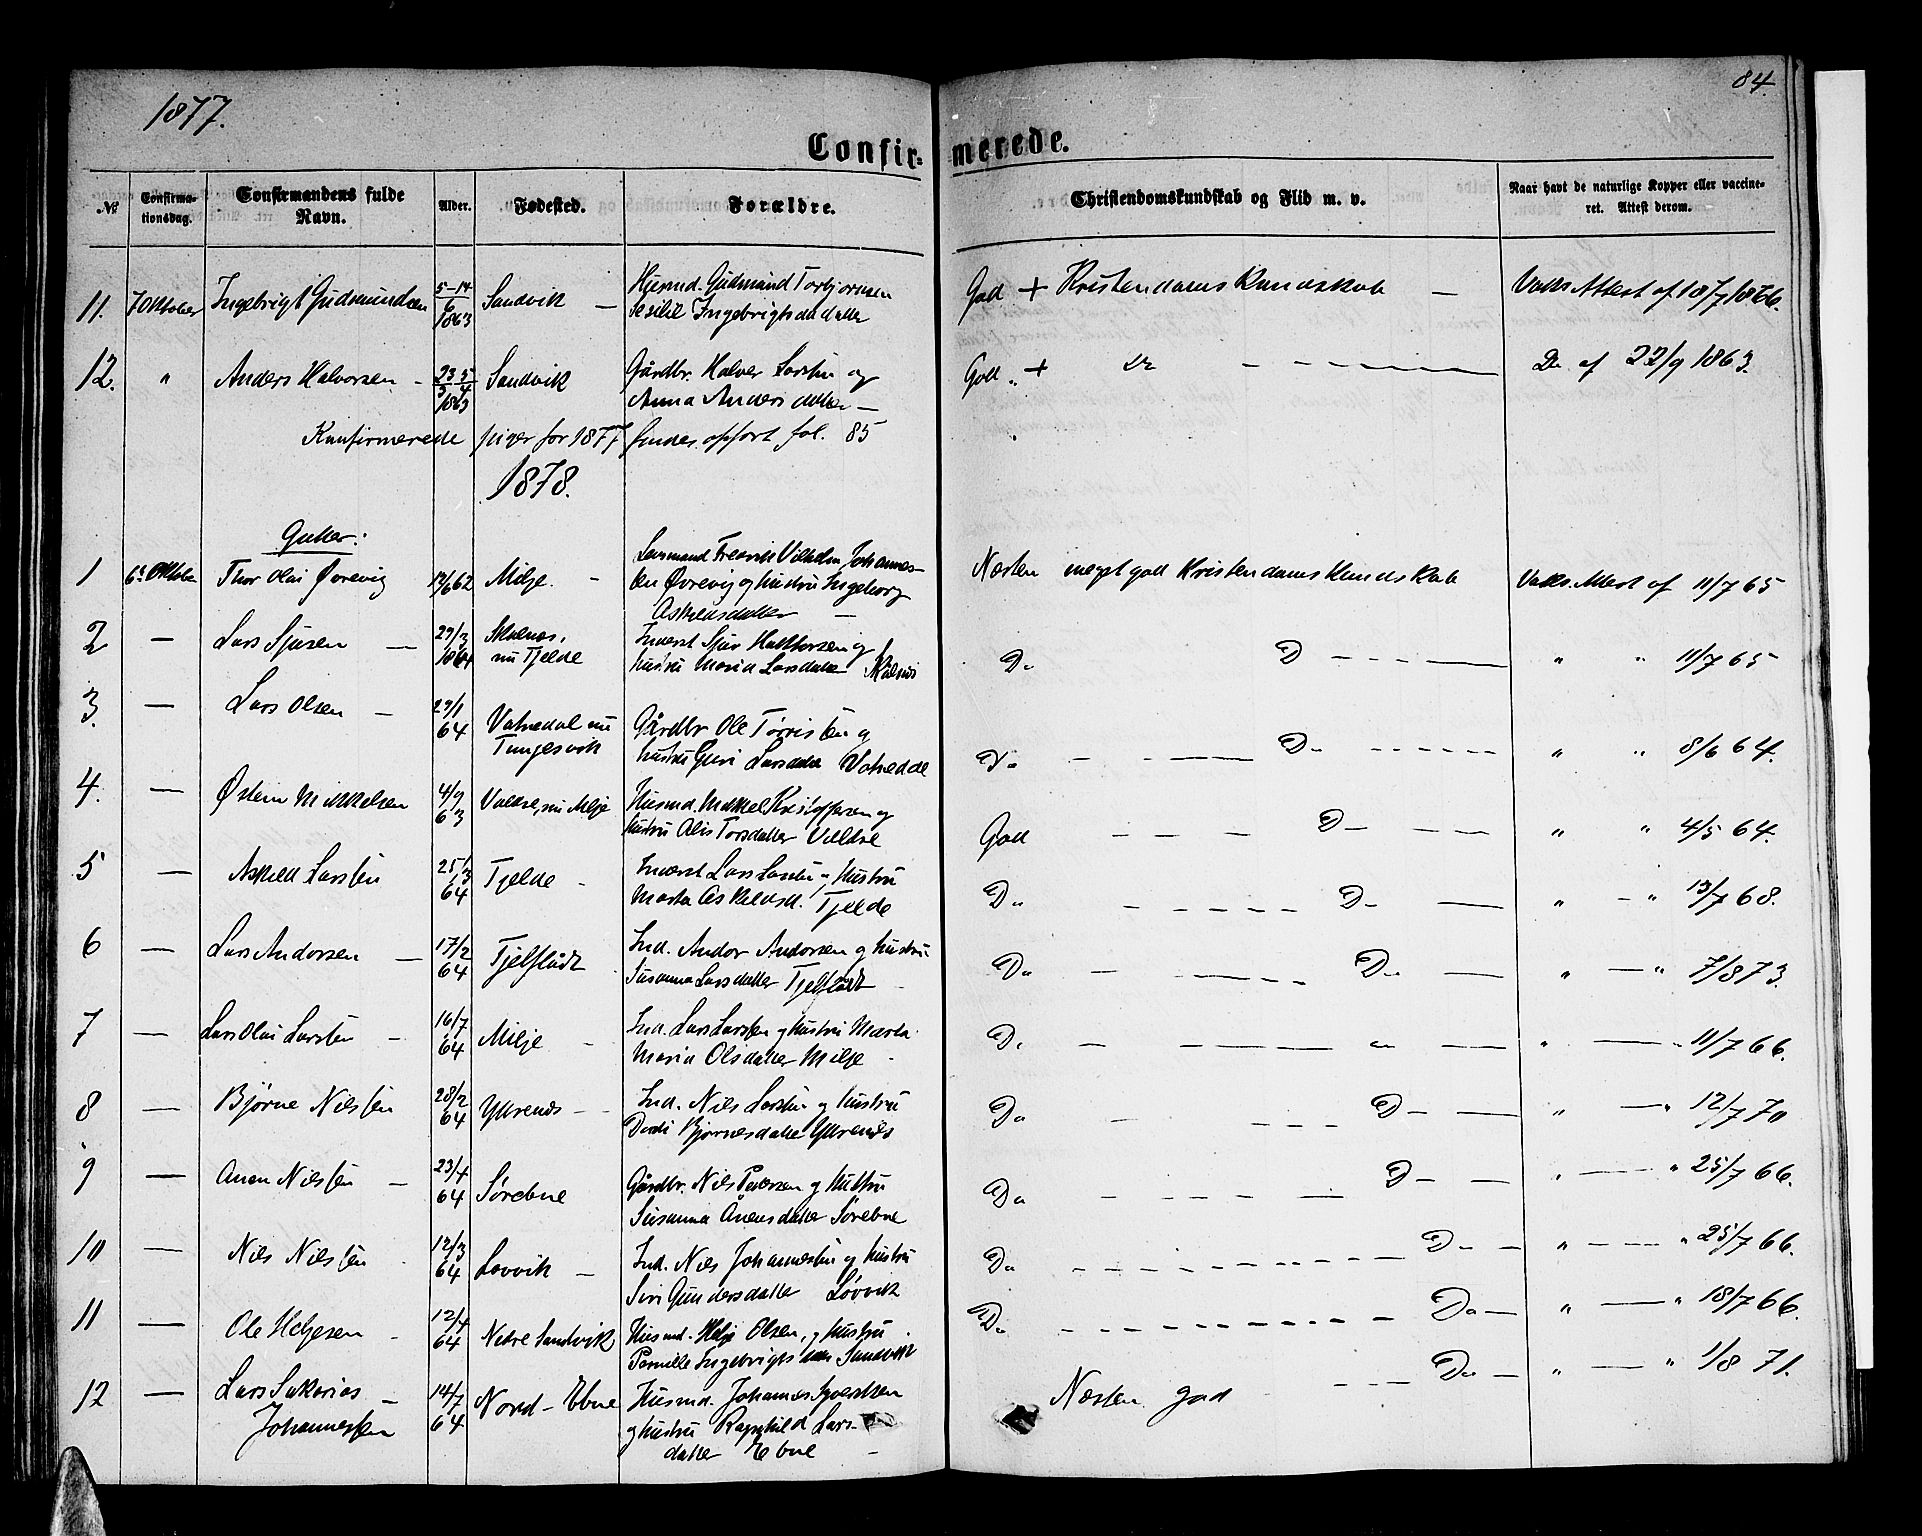 1877.
84.
Confirmerede.
№
Confirmationsdag.
Confirmandens fulde Navn.
Alder.
Fødested.
Forældre.
Christendomskundskab og Flid m. v.
Naar havt de naturlige Kopper eller vaccineret. Attest derom.
11. 7 Oktober Ingebrigt Gudmundsen 5-14/6 1863 Sandvik — Husmd. Gudmund Torbjørnsen
Ingebrigtsdatter
God + Kristendoms Kundskab — Vakc. Attest af 18/7 1866.
12. " Anders Halvorsen - 1863 Sandvik Gårdbr. Halvor Larsen og
Anna Andersdatter —
God + — Do af 22/9 1863.
Konfirmerede piger for 1877 findes opført fol. 85
1878.
Gutter:
1 6te Oktober Thor Olai Øvrevig 12/6 62 Milje. - Johannes-
sen Øvrevig og hustru Ingeborg
Askelsdatter —
Næsten meget god Kristendoms Kundskab Vakc. Attest af 11/7 65
2 — Lars Sjursen — 29/3 1864 nu Tjelde Inderst Sjur og
hustru Maria Larsdatter
Do D — " " 11/7 65
3. — Lars Olsen — 29/1 64 Vatnedal nu
Tungesvik
Gårdbr Ole Tørrissen og
hustru Guri Larsdatter
Do — Do — " " 8/6 64.
4. — Østein Mikkelsen 4/9 63 nu Milje Husmd. Mikkel Kristoffersen og
hustru Torsdatter
God — D — " " 4/5 64.
5 — Askild Larsen 25/3 64 Tjelde - Inderst Lars Larsen og Hustru
Marta Askeldsd. Tjelde
Do — D — " — " 13/7 68.
6 — Lars Andorsen — 17/2 64 Tjelflådt Ind. Andor Andorsen og hustru
Susanna Larsdatter Tjelflådt
Do — Do — " — " 7/8 73.
7 — Lars Olai Larsen - 16/7 64 Milje - Ind. Lars Larsen og hustru Marta
Maria Olsdatter Milje
Do — " — " — " 11/7 66.
8 — Bjørne Nilsen 28/2 64 Ytrenes - Ind. Nils Larsen og hustru
Bjørnesdatter Ytrenes
Do — D — " — " 12/7 70
9 — Anen Nilsen — 23/4 64 Sørebne Gårdbr. Nils Pedersen og hustru
Susanna Ånensdatter Sørebne
Do — D — " — " 25/7 66.
10 — Nils Nilsen 12/3 64 Løvvik — Ind. Nils Johannessen og hustru
Siri Gundersdatter Løvvik
Do — D — " — " 25/7 66.
11 — Ole Helgesen - 12/4 64 Nedre Sandvik Husmd. Helje Olsen, og hustru
Pernille Ingebrigtsdatter Sandvik
Do — Do — " — " 18/7 66.
12 — Lars Sakarias —
Johannessen
14/7 64 Nord-Ebne Husmd. Johannes Sjovertsen
og hustru Ragnhild Lars-
datter Ebne —
Næsten god — Do — " — " 1/8 71.